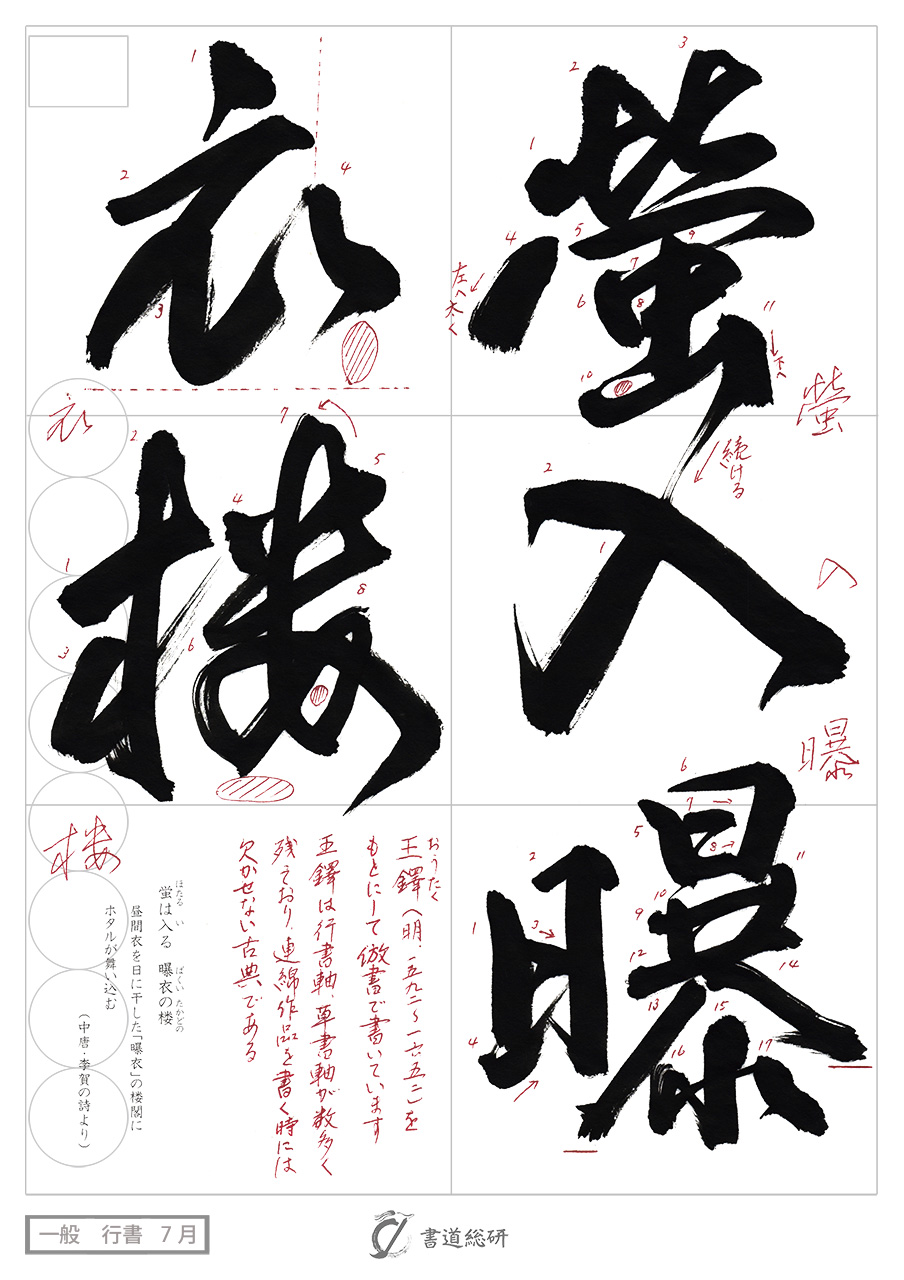 螢入曝
衣楼
左へ太く
下へ
続ける
螢
入
曝
衣
楼
おうたく
王鐸(明・一五九二~一六五二)を
もとにして倣書で書いています
王鐸は行書軸、草書軸が数多く
残ており、連綿作品を書く時には
欠かせない古典である
ほたる い ばくい たかどの
蛍は入る 曝衣の楼
昼間衣を日に干した「曝衣」の楼閣に
ホタルが舞い込む
(中唐・李賀の詩より)
一般 行書 7月
書道総研